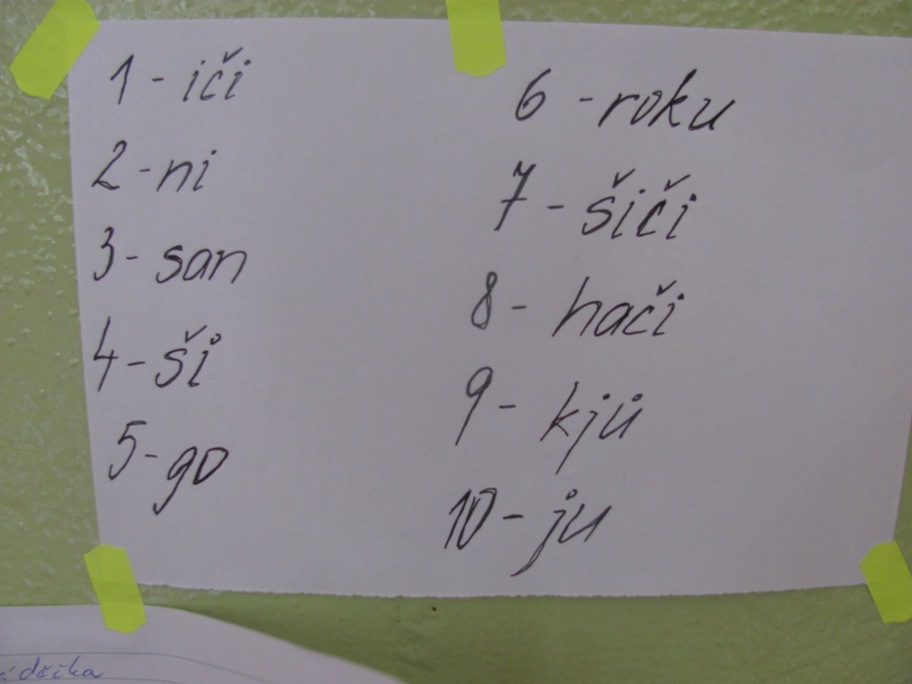 1 - iči
2 - ni
3 - san
4 - ši
5 - go
6 - roku
7 - šiči
8 - hači
9 - kjů
10 - ju